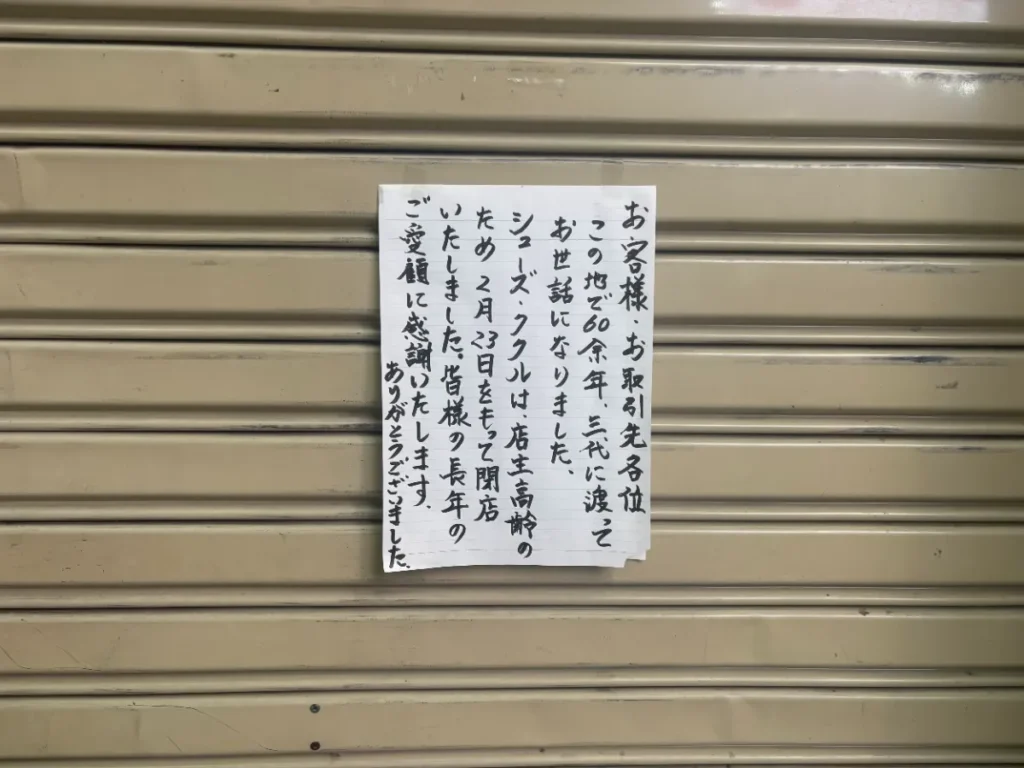 お客様・お取引先各位
この地で60余年、三代に渡って
お世話になりました、
シューズ・ククルは、店主高齢の
ため 2月23日をもって閉店
いたしました。皆様の長年の
ご愛顧に感謝いたします、
ありがとうございました、